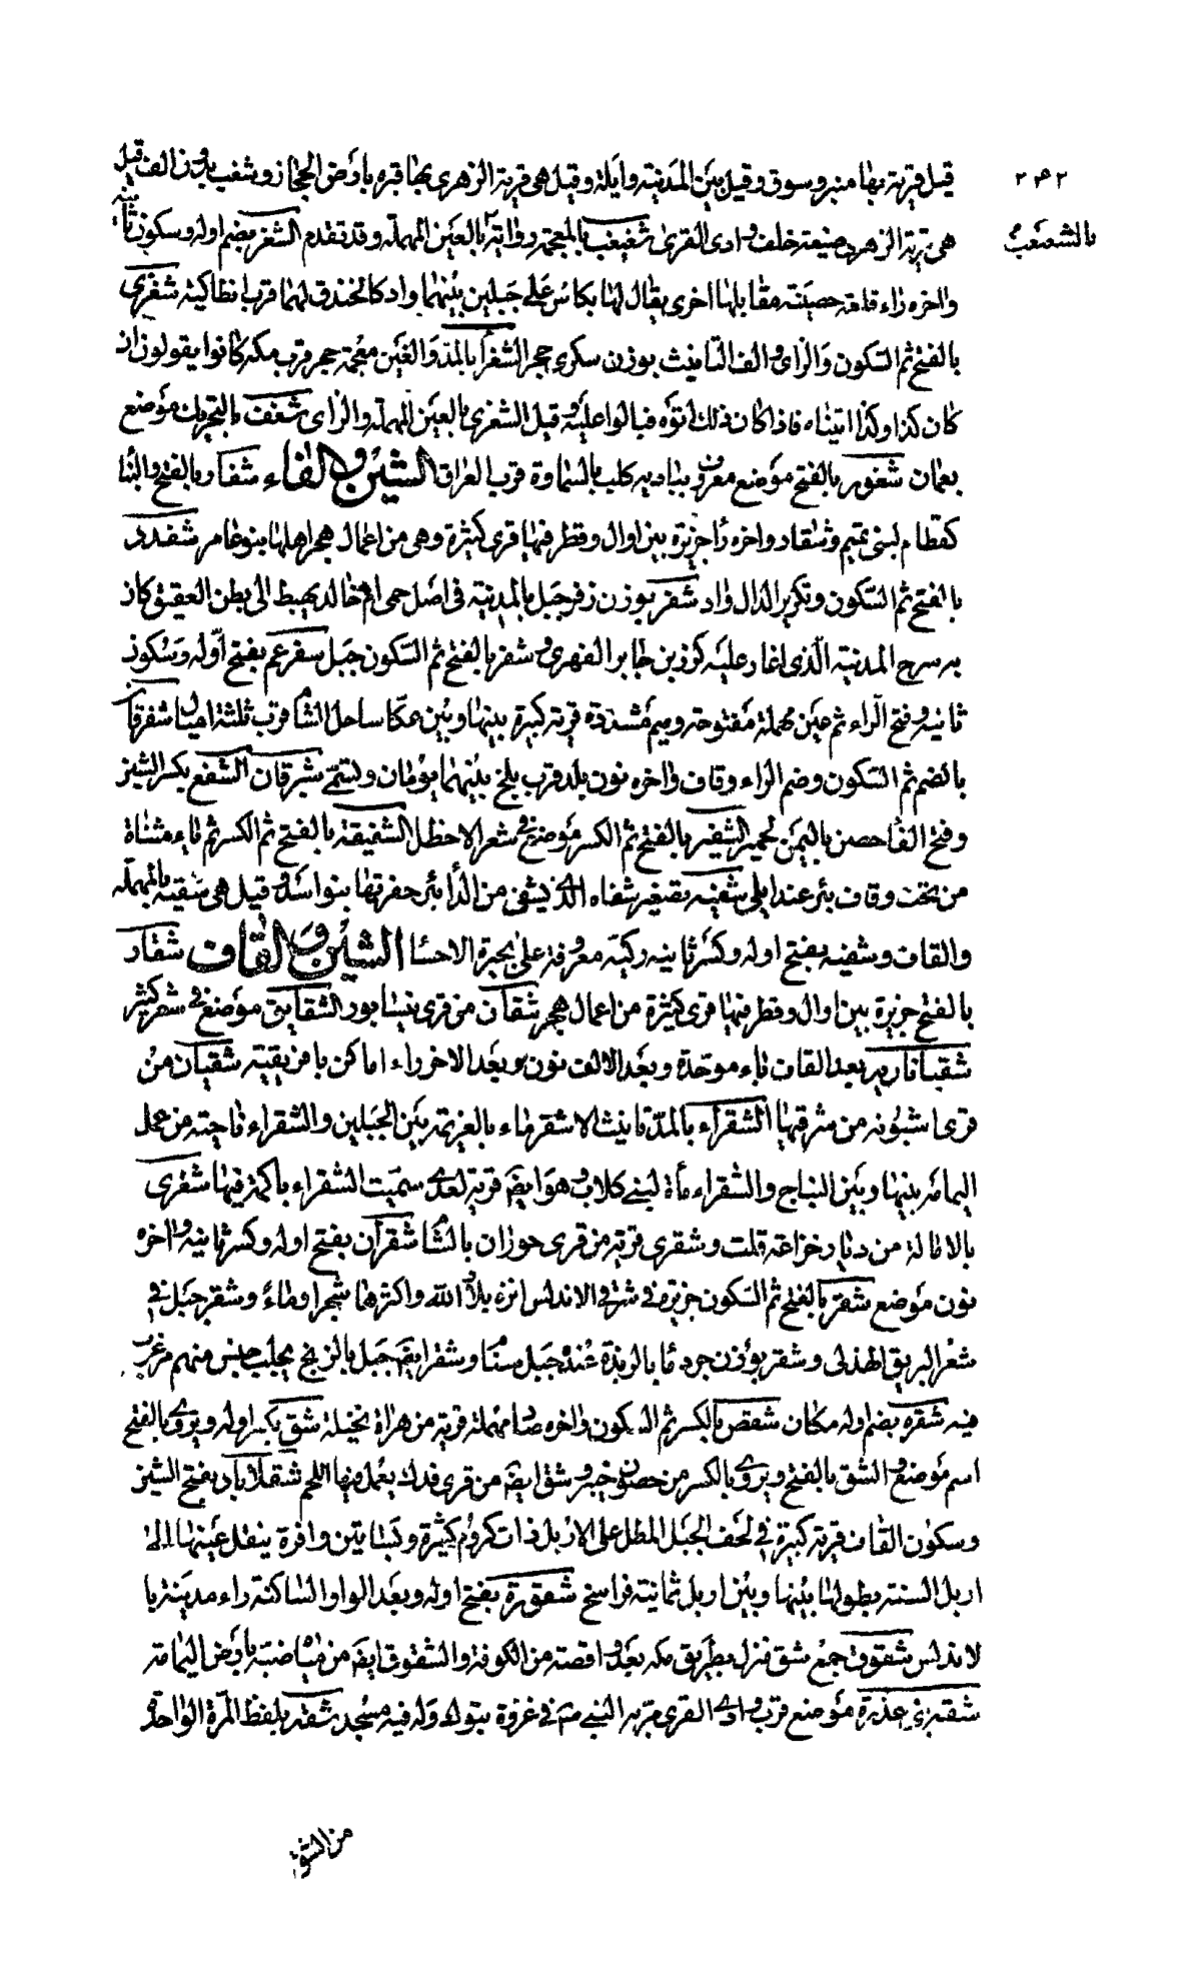 ٢٤٢
بالشعب
قيل قرية بها منبر وسوق وقيل بين المدينة وايلة وقيل هي قرية الزهري بها قبره بارض الحجاز وشغب بدون الف قيل
هي قرية الزهري ضيعة خلف وادى القرى شغبغب بالمعجمة رواية بالعين المهملة وقد تقدم الشغر بضم اوله وسكون ثانيه
واخره راء قلعة حصينة مقابلها اخرى يقال لها بكاس على جبلين بينهما واد كالخندق لهما قرب انطاكية شغزى
بالفتح ثم السكون والزاى والف التانيث بوزن سكرى حجر الشغزا بالمد والغين معجمة حجر قرب مكة كانوا يقولون ان
كان كذا وكذا اتيناه فاذا كان ذلك اتوه فبالوا عليه وقيل الشعزى بالعين المهملة والزاى شغف بالتحريك موضع
بعمان شغور بالفتح موضع معروف ببادية كلب بالسماوة قرب العراق الشين والفاء شفار بالفتح والبناء
كقطام لبنى تميم وشفار واخره را جزيرة بين اوال وقطر فيها قرى كثيرة وهي من اعمال هجر اهلها بنو عامر شفدد
بالفتح ثم السكون وتكرير الدال واد شفر بوزن زفر جبل بالمدينة في اصل حمى ام خالد يهبط الى بطن العقيق كان
به سرح المدينة الذى اغار عليه كرز بن جابر الفهرى وشفر بالفتح ثم السكون جبل سفرعم بفتح اوله وسكون
ثانيه وفتح الراء ثم عين مهملة مفتوحة وميم مشددة قرية كبيرة بينها وبين عكا ساحل الشام قرب ثلثة اميال شفرقان
بالضم ثم السكون وضم الراء وقاف واخره نون بلد قرب بلخ بينهما يومان وتسمى شبرقان الشفع بكسر الشين
وفتح الفا حصن باليمن لحمير الشفير بالفتح ثم الكسر موضع في شعر الاخطل الشفيقة بالفتح ثم الكسر ثم ياء مثناة
من تحت وقاف بئر عند ابلى شفية تصغير شفاه الله يشفى من الدا بئر حفرتها بنو اسد وقيل هي سقية بالمهملة
والقاف وشفيه بفتح اوله وكسر ثانيه ركية معروفة على بحيرة الاحسا الشين والقاف شقار
بالفتح جزيرة بين اوال وقطر فيها قرى كثيرة من اعمال هجر شقان من قرى نيسابور الشقايق موضع في شعر كثير
شقبانارية بعد القاف باء موحدة وبعد الالف نون وبعد الاخر راء اماكن بافريقية شقبان من
قرى اشبونة من شرقيها الشقراء بالمد تانيث الاشقر ماء بالعريمة بين الجبلين والشقراء ناحية من عمل
اليمامة بينها وبين النباج والشقراء مأة لبنى كلاب وهو ايضا قرية لعدى سميت الشقراء باكمة فيها شقرى
بالامالة من ديار خزاعة قلت وشقرى قرية من قرى حوران بالشام شقران بفتح اوله وكسر ثانيه واخره
نون موضع شقر بالفتح ثم السكون جزيرة في شرقي الاندلس انزه بلاد الله واكثرها شجرا وماء وشقر جبل في
شعر البريق الهذلى وشقر بوزن جرد ما بالربذة عند جبل سنام وشقر ايضا جبل بالزنج يجلب جنس منهم مرغوب
فيه شقرة بضم اوله مكان شقص بالكسر ثم السكون واخره صاد مهملة قرية من هراة بجيلة شق بكسر اوله ويروى بالفتح
اسم موضع والشق بالفتح ويروى بالكسر من حصون خيبر وشق ايضا من قرى فدك يعمل فيها اللجم شقلاباد بفتح الشين
وسكون القاف قرية كبيرة في لحف الجبل المطل على الاربل ذات كروم كثيرة وبساتين وافرة ينقل عنبها الى
اربل السنة بطولها بينها وبين اربل ثمانية فراسخ شقورة بفتح اوله وبعد الواو الساكنة راء مدينة با
لاندلس شقوق جمع شق منزل بطريق مكة بعد واقصة من الكوفة والشقوق ايضا من مياه ضبة بارض اليمامة
شقة بنى عذرة موضع قرب وادى القرى مر به النبي صم في غزوة تبوك وله فيه مسجد شقة بلفظ المرة الواحدة
من الشق